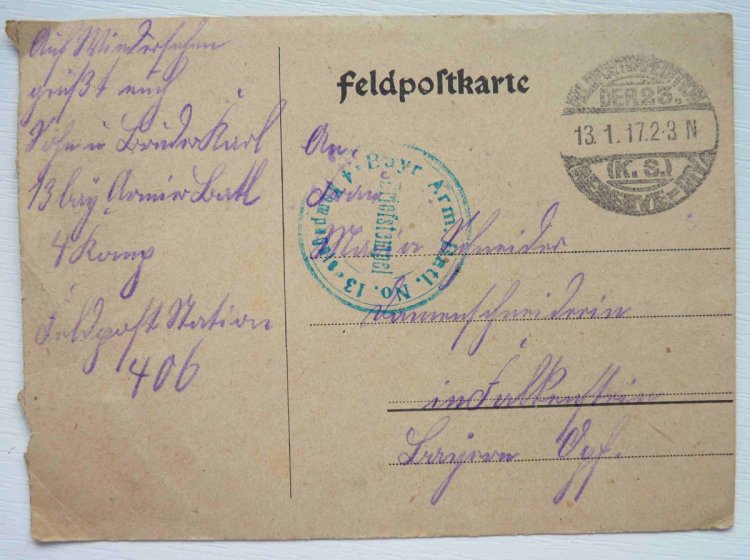 Auf Wiedersehen
grüßt euch
Sohn u Bruder Karl
13 bay Armier Batl
4 Komp
Feldpost Station
406
Feldpostkarte
FELDPOSTEXPEDITION
DER 23.
13. 1. 17. 2-3 N
(K. S.)
RESERVE-DIV.
K. B. Bayr. Arm. Batl. No. 13
Briefstempel
An
Frau
Maria Schneider
Damenschneiderin
in Falkenstein
Bayern Opf.